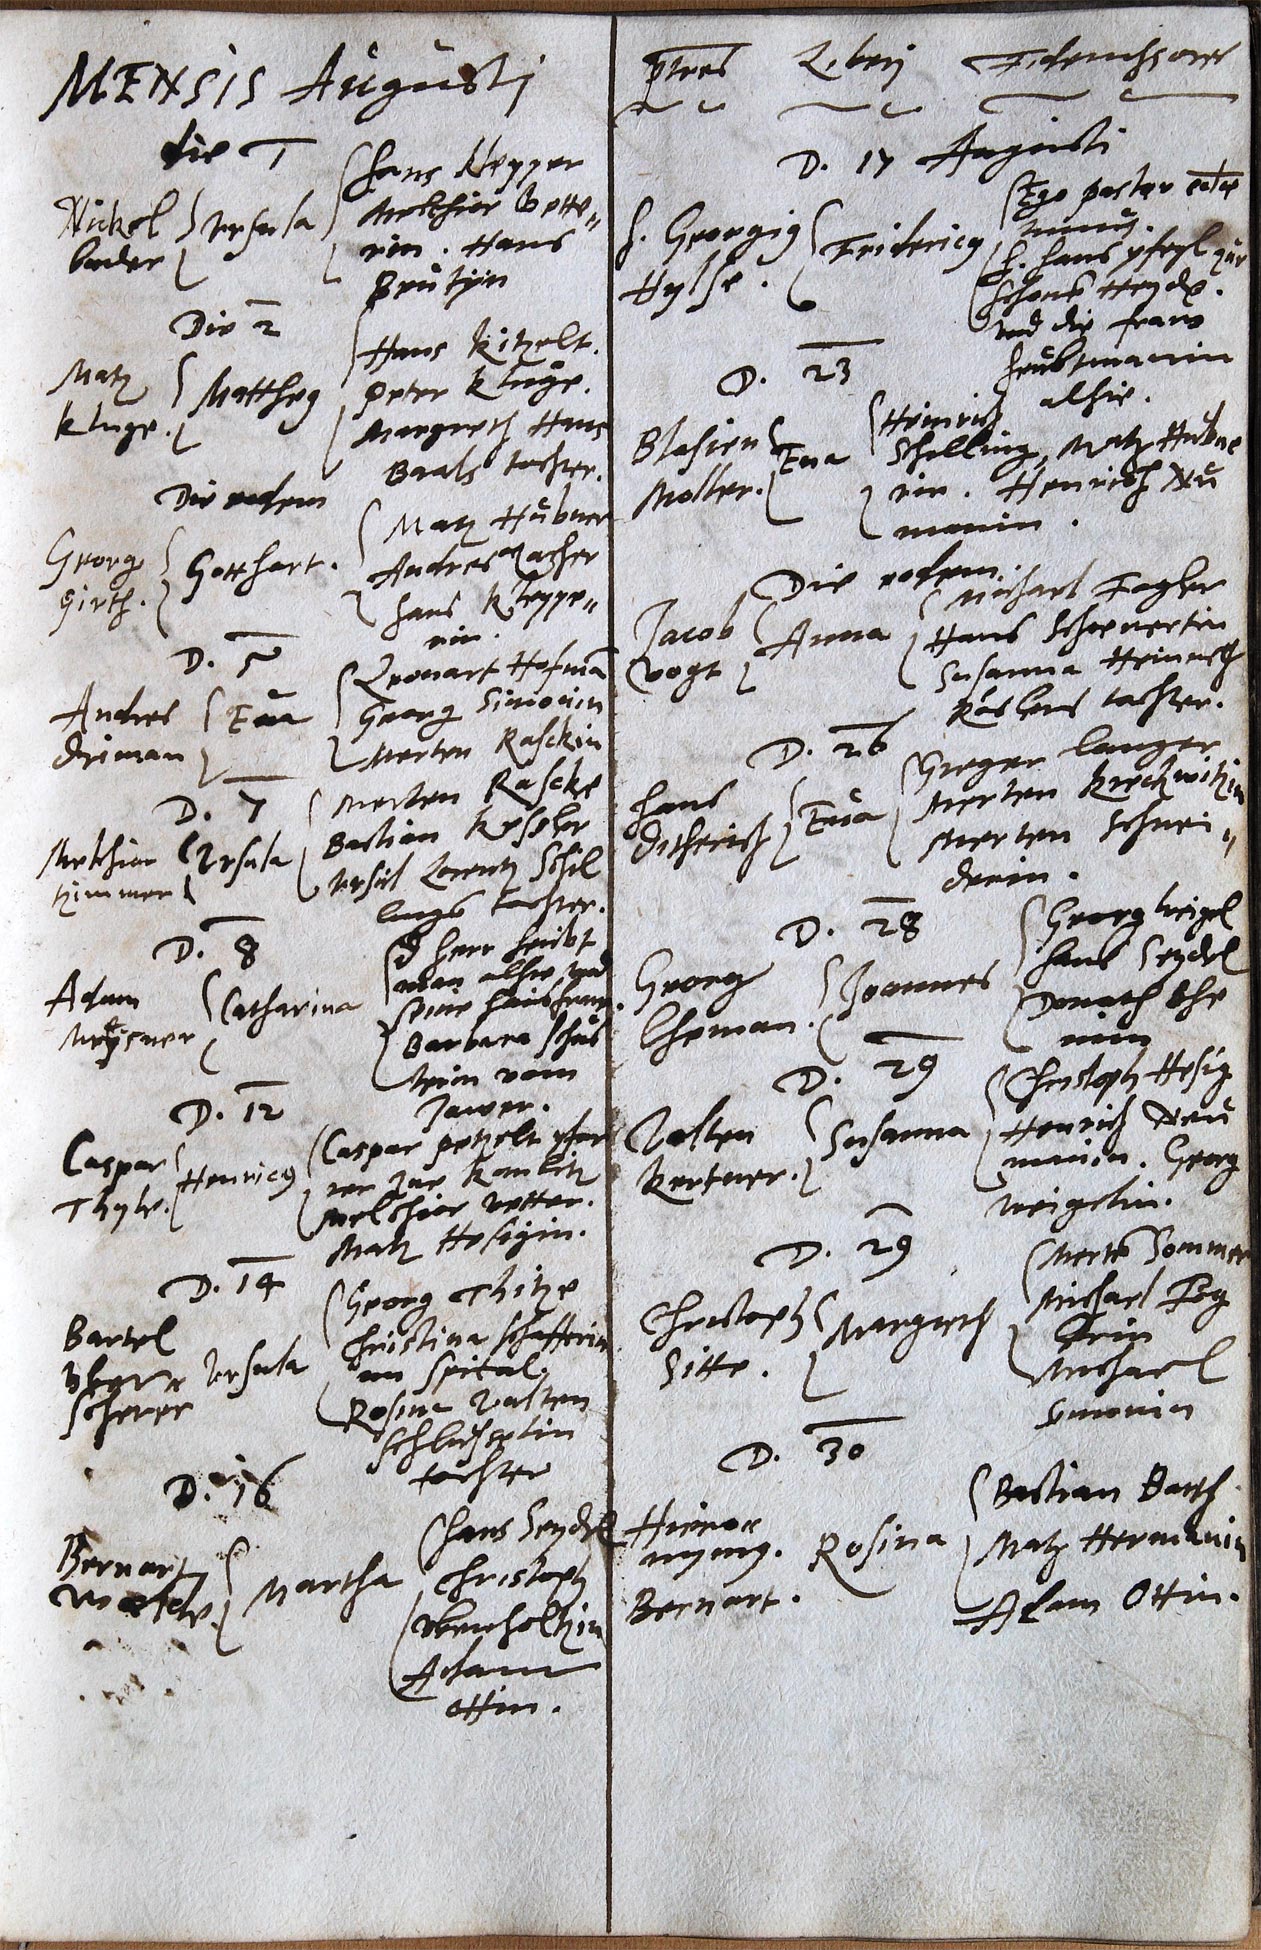 MENSIS Augusti
die 1
Nickel
bader
Ursula
Hans Kleyper
Melchior Vette„
rin. Hans
Die 2
Matz
Kluge.
Mattheus
Hans Kitzelt.
Peter Kluge.
Margreth Hans
Baals tochter.
Die eodem
Georg
Girth.
Gotthart.
Matz Hübner
Andres Zacher
Hans Kleyppe„
rin.
D. 5
Andres
driman
Eua
Leonart Hofman
Georg Simonin
Merten Raschkin
D. 7
Melchior
tzimmer
Ursula
Merten Raschke
Bastian Kessler
Ursul Lorentz Schil
lings tochter.
D. 8
Adam
Meysner
Catharina
d herr heubt
man alhie und
seine hausfraw.
Barbara
vom
Jawer.
D. 12
Caspar
Thyle.
Henricus
Caspar petzelt pfar
rer zue
Melchior Vetter.
Matz Hesigin.
D. 14
Bartel
scherer
Ursula
Georg Thitze
Christina schafferin
im Spital.
Rosina Valten
tochter
D. 16
Bernart
Martha
Hans Seydel
Christoph
Adam
Ottin.
ptres Liberj Fideiussores
D. 17 Augusti
h. Georgius
Hylse.
Fridericus
Ego pastor
h. Hans
und die fraw
heubtmanin
alhie.
D. 23
Blasien
Moller.
Eua
Heinrich
Schilling, Matz Hübne
rin. Henrich Neu
manin.
Die eodem.
Jacob
Vogt
Anna
Michael Fogler
Hans
Susanna Heinrich
tochter.
D. 26
Hans
ditherich
Eua
Greger langer
Merten Kreckwitzin
Merten Schnei„
derin.
D. 28
Georg
lheman.
Joannes
Georg Weigel
Hans Seydel
Donath
D. 29
Valten
Kertner.
Susanna
Christoph Hesig
Henrich Neu
manin. Georg
Weigelin.
D. 29
Christoph
Sitte.
Margreth
Merte Sommer
Michael Fog
lerin
Michael
Simonin
D. 30
Hiero„
nymus.
Bernart.
Rosina
Bastian Barth.
Matz Hermanin
Adam Ottin.